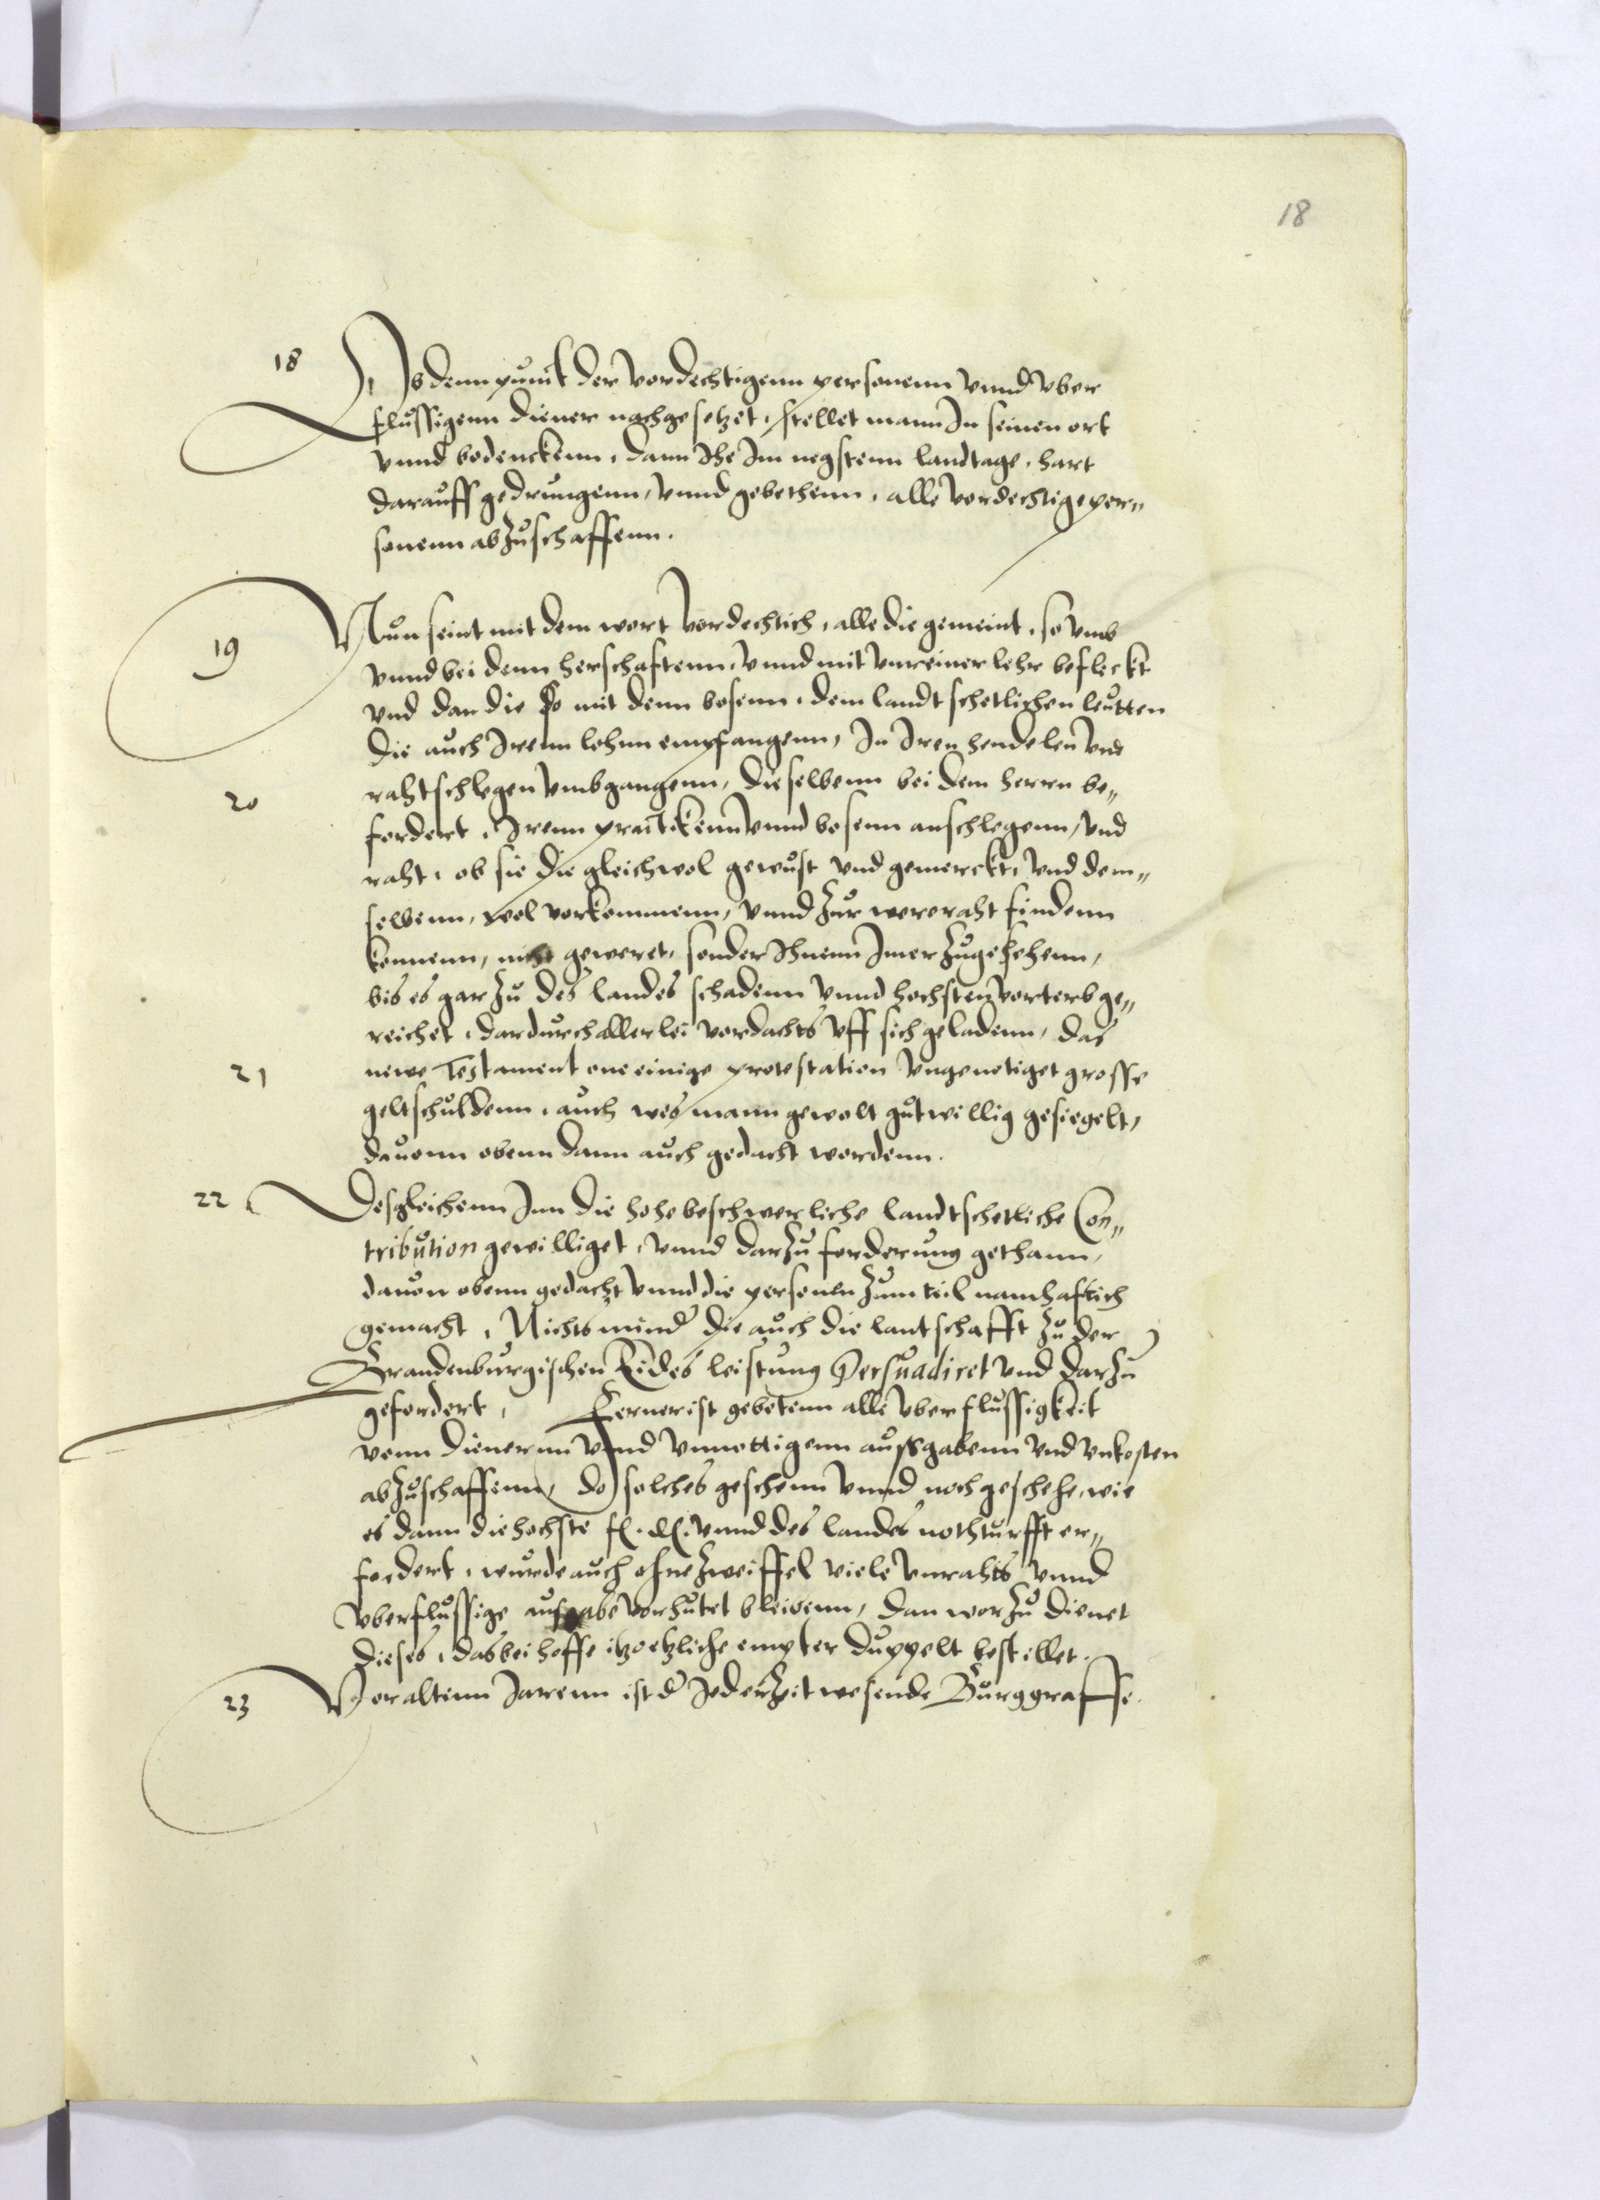 18
18
Als denn punct der vordechtigenn personenn vnnd vber
flussigenn diener nachgesetzet, stellet mann In seinen ort
vnnd bedenckenn, dann Ihe Im negstenn landtage, hart
darauff gedrungenn, vnnd gebethenn, alle vordechtige per„
sonenn abzuschaffenn.
19
Nun seint mit dem wort vordechtich, alle die gemeint, so vmb
vnnd bei denn herschaftenn, vnnd mit vnreiner lehr befleckt
vnd dan die so mit denn bosenn, dem landt schetlichen leutten
die auch Irenn lohnn empfangenn, In Iren hendelen vnd
20
rahtschlegen vmbgangenn, dieselbenn bei dem herrn be„
fordert, Irenn practickenn vnnd bosenn anschlegenn, vnd
raht, ob sie die gleichwol gewust vnd gemerckt, vnd dem„
selbenn, wol vorkommenn, vnnd zur were raht findenn
konnenn, nicht geweret, sonder Ihnenn Imer zugesehenn,
bis es gar zu des landes schadenn vnnd hochsten vorterb ge„
reichet, dardurch allerlei vordachts vff sich geladenn, das
21
newe Testament one einige protestation vngenotiget grosse
geltschuldenn, auch wes mann gewolt gutwillig gesiegelt,
dauonn obenn dann auch gedacht wordenn.
22
Desgleichenn Inn die hohe beschwerliche landtschetliche Con„
tribution gewilliget, vnnd darzu forderung gethann,
dauon obenn gedacht vnnd die personen zum teil namhaftich
gemacht, Nichts minder die auch die lantschafft zu der
Brandenburgischen Eides leistung Persuadiret vnd darzu
gefordert, Ferner ist gebetenn alle vberflussigkeit
vonn dienernn vnnd vnnottigenn aussgabenn vnd vnkosten
abzuschaffenn, do solches geschenn vnnd noch geschehe, wie
es dann die hochste f. d. vnnd des landes nothturfft er„
fordert, wurde auch ohne zweiffel viele vnrahts vnnd
vberflussige ausgabe vorhutet bleibenn, dan worzu dienet
dieses, das bei hoffe itzo etzliche empter duppelt bestellet.
23
Vor altenn Jarenn ist der Jederzeit wesende Burggraffe